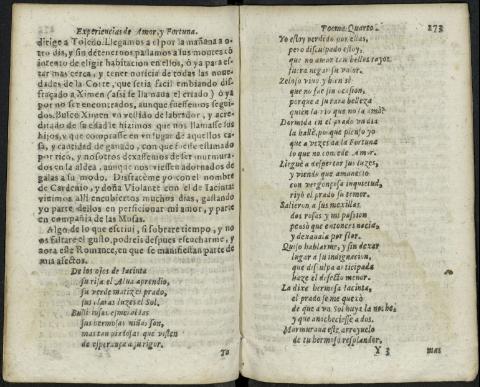 Experiencias de Amor, y Fortuna.
dirige a Toledo. Llegamos a el por la mañana a o-
tro dia, y sin detenernos passamos a sus montes cõ
intento de eligir habitacion en ellos, ò ya para es-
tar mas cerca, y tener noticia de todas las noue-
dades de la Corte, que seria facil embiando dis-
fraçado a Ximen (assi se llamaua el criado) ò ya
por no ser encontrados, aunque fuessemos segui-
dos. Busco Ximen vn vestido de labrador, y acre-
ditado de su edad le hizimos que nos llamasse sus
hijos, y que comprasse en vn lugar de aquellos ca-
sa, y cantidad de ganado, con que fuesse estimado
por rico, y nosotros dexassemos de ser murmura-
dos en la aldea, aunque nos viessen adornados de
galas a su modo. Disfracème yo con el nombre
de Cardenio, y doña Violante con el de Iacinta:
viuimos alli encubiertos muchos dias, gastando
yo parte dellos en perficionar mi amor, y parte
en compañia de las Musas.
Algo de lo que escriui, si sobrare tiempo, y no
os faltare el gusto, podreis despues escucharme, y
aora este Romance, en que se manifiestan parte de
mis afectos.
De los ojos de Iacinta
su risa el Alua aprendio,
su verde matiz el prado,
sus claras luzes el Sol.
sus hermosas niñas son,
de esperança a su rigor.
To
Poema Quarto. 173
Yo estoy perdido por ellas,
pero disculpado estoy,
que no amar tan bellos rayos
fuera negar su valor.
Zeloso viuo, y bien sè
que no fue sin ocasion,
porque a su rara belleza
quien la viò que no la amò?
Dormida en el prado vn dia
la hallè, porque pienso yo
que a vezes da la Fortuna
lo que no concede Amor.
Lleguè a despertar sus luzes,
y viendo que amanecio
con vergonçosa inquietud,
riyò el prado su temor.
Salieron a sus mexillas
dos rosas, y mi passion
pensò que entonces nacia,
y dexauala por flor.
Quiso hablarme, y sin dexar
lugar a su indignacion,
que disculpa anticipada
haze el defecto menor.
La dixe hermosa Iacinta,
el prado se me quexò
de que a vn Sol huya la noche,
y que anocheciesse a dos.
Murmuraua este arroyuelo
de tu hermoso resplandor,
Y 3 mas